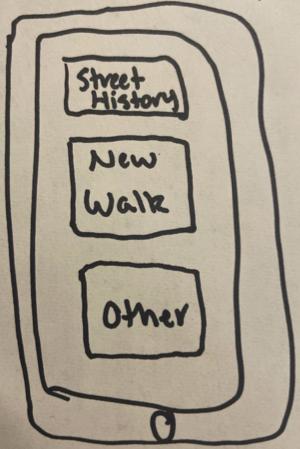 Street
History
New
Walk
Other